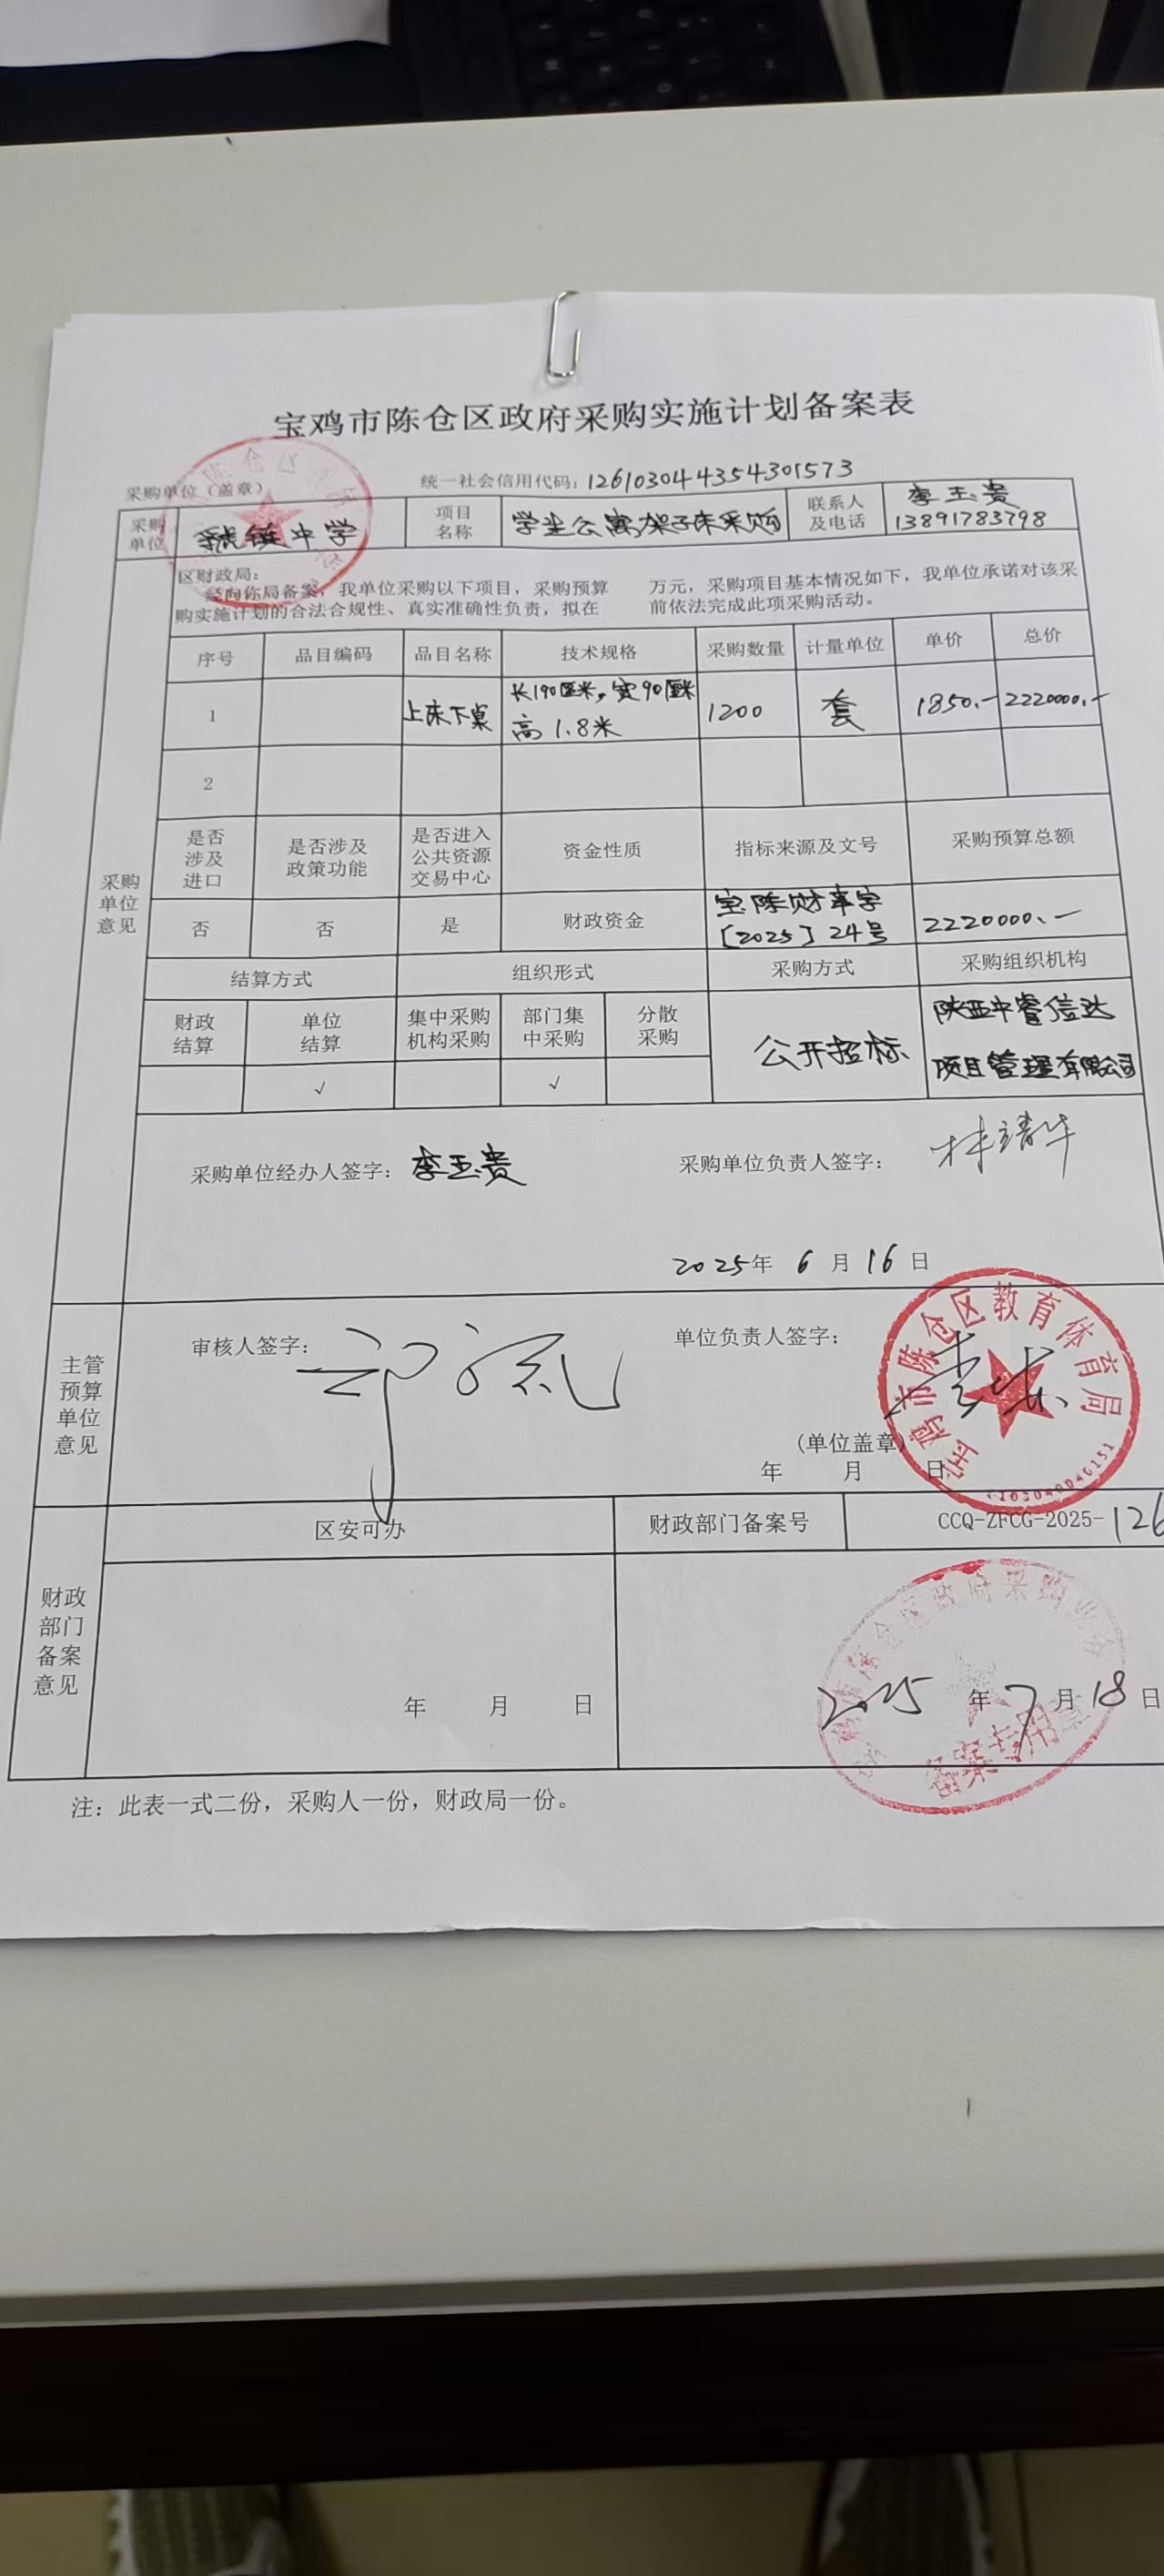 宝鸡市陈仓区政府采购实施计划备案表
采购单位（盖章） 统一社会信用代码：126103044354301573
采购单位 虢镇中学 项目名称 学生公寓架子床采购 联系人及电话 李玉贵 13891783798
区财政局：
经向你局备案，我单位采购以下项目，采购预算 万元，采购项目基本情况如下，我单位承诺对该采
购实施计划的合法合规性、真实准确性负责，拟在 前依法完成此项采购活动。
序号 品目编码 品目名称 技术规格 采购数量 计量单位 单价 总价
1 上床下桌 长190厘米，宽90厘米 高1.8米 1200 套 1850.- 2220000.-
2
采购单位意见
是否涉及进口 是否涉及政策功能 是否进入公共资源交易中心 资金性质 指标来源及文号 采购预算总额
否 否 是 财政资金 宝陈财事字[2025]24号 2220000.-
结算方式 组织形式 采购方式 采购组织机构
财政结算 单位结算 集中采购机构采购 部门集中采购 分散采购 公开招标 陕西中睿信达项目管理有限公司
√ √
采购单位经办人签字：李玉贵 采购单位负责人签字：
2025年 6月 16日
主管预算单位意见
审核人签字： 单位负责人签字：
(单位盖章)
年 月 日
宝鸡市陈仓区教育体育局
区安可办 财政部门备案号 CCQ-ZFCG-2025-126
财政部门备案意见
年 月 日 2025年 7月 18日
备案专用章
注：此表一式二份，采购人一份，财政局一份。